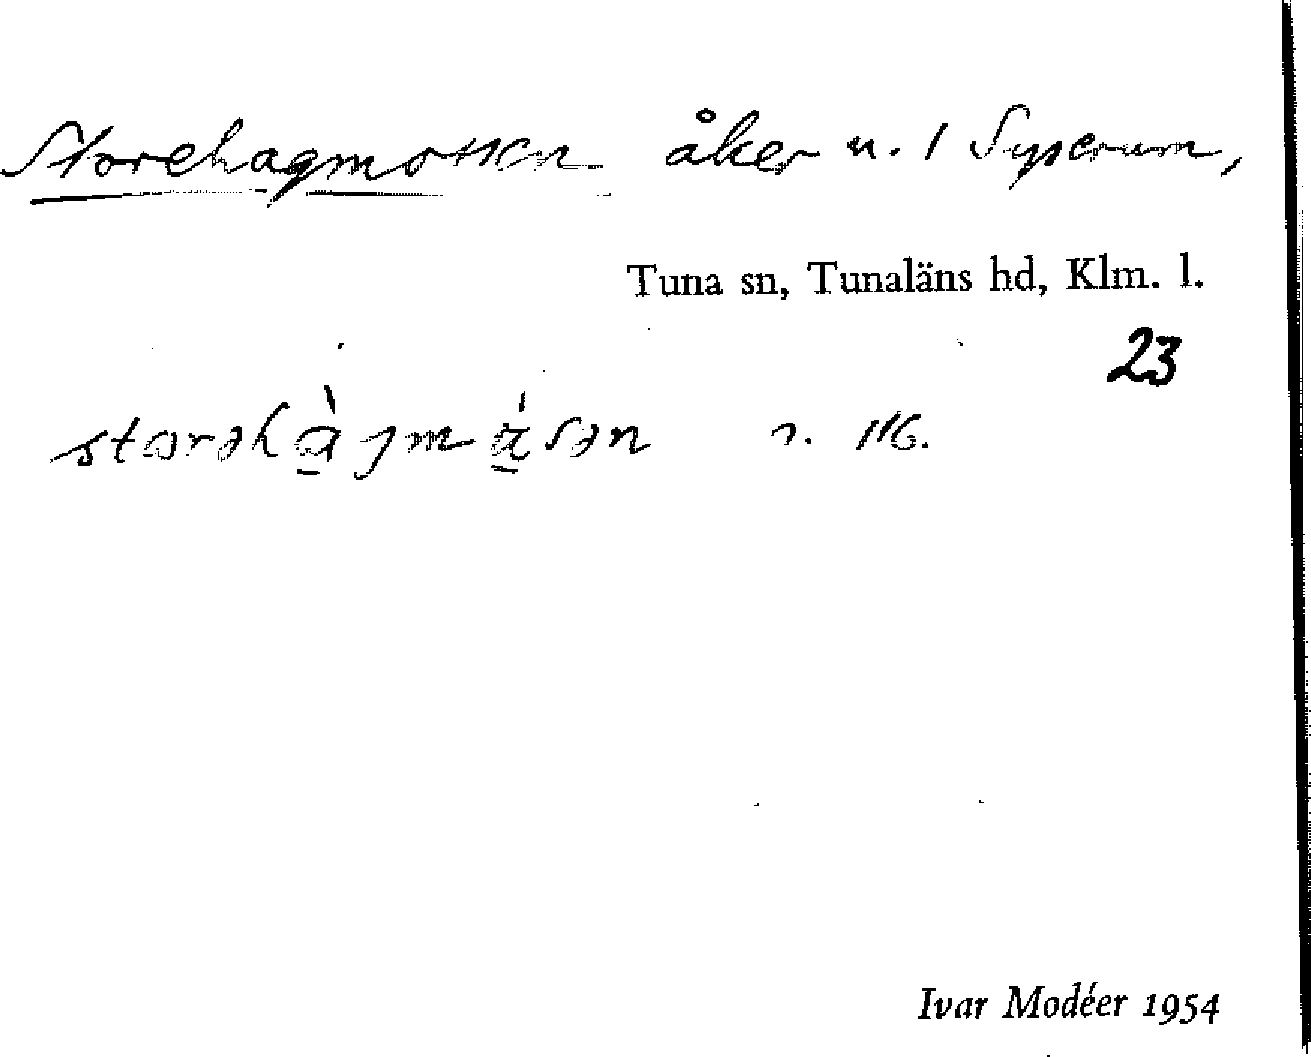 Storehagmossen åker n. 1 Syserum,
Tuna sn, Tunaläns hd, Klm. l.
23
storəhàgmåsən 116.
Ivar Modéer 1954